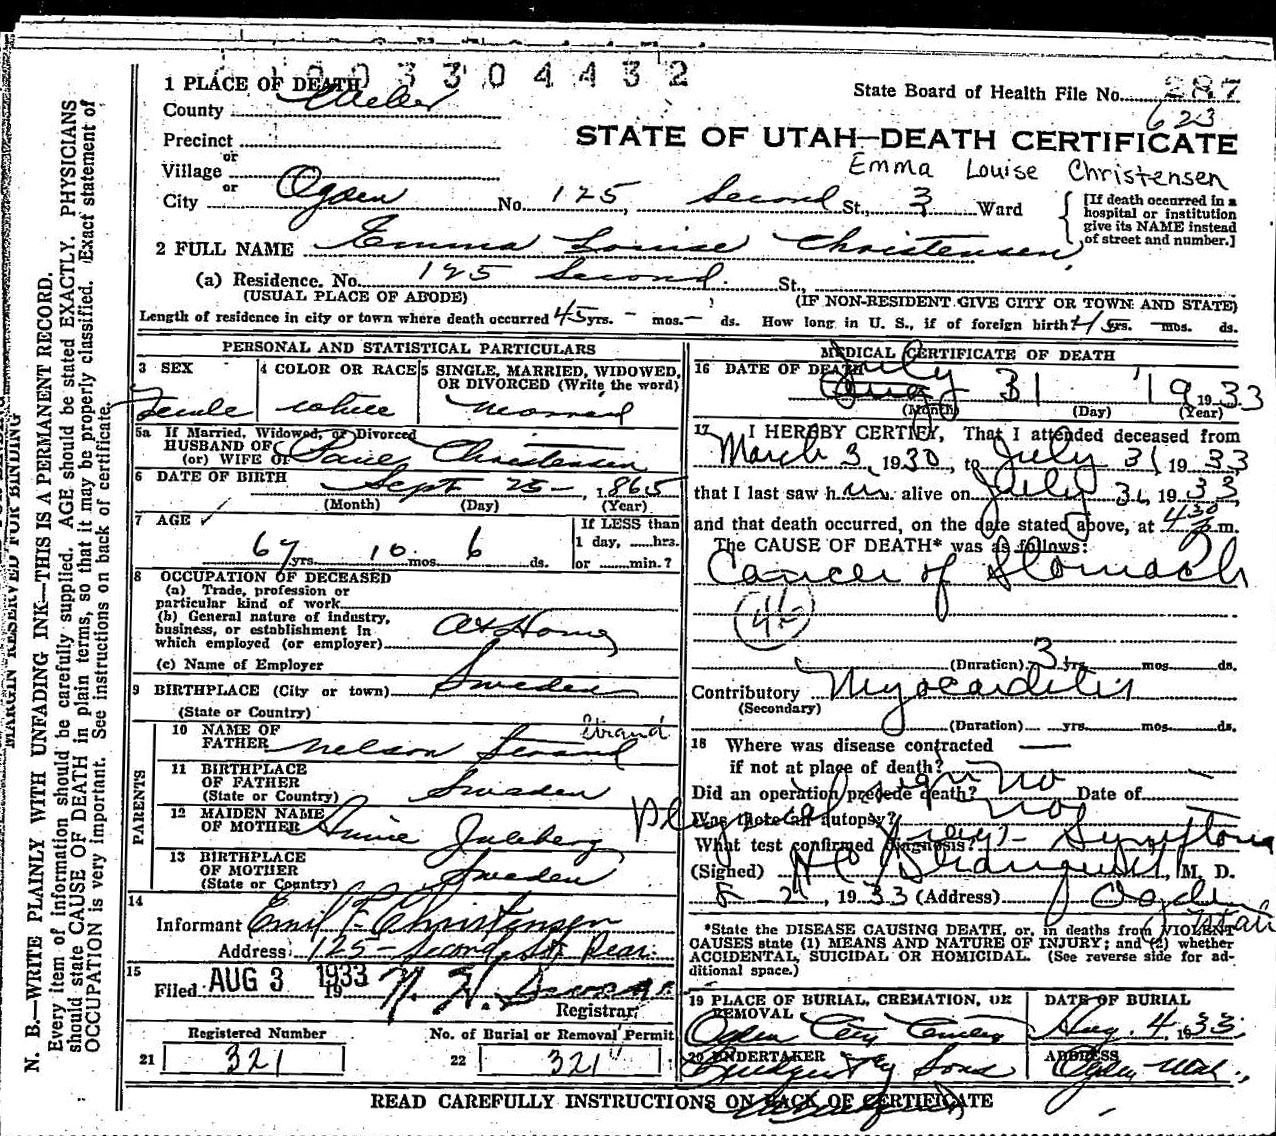 0 0 3 3 0 4 4 3 2
1 PLACE OF DEATH
County Weber
State Board of Health File No. 287
623
Precinct
STATE OF UTAH—DEATH CERTIFICATE
or
Village
Emma Louise Christensen
or
City Ogden No. 125, Second St., 3 Ward
[If death occurred in a hospital or institution give its NAME instead of street and number.]
2 FULL NAME Emma Louise Christensen,
(a) Residence. No. 125 Second St.,
(USUAL PLACE OF ABODE) (IF NON-RESIDENT GIVE CITY OR TOWN AND STATE)
Length of residence in city or town where death occurred 45 yrs. - mos. - ds. How long in U. S., if of foreign birth 45 yrs. — mos. ds.
PERSONAL AND STATISTICAL PARTICULARS
3 SEX 4 COLOR OR RACE 5 SINGLE, MARRIED, WIDOWED,
OR DIVORCED (Write the word)
Female white Married
5a If Married, Widowed, or Divorced
HUSBAND OF
(or) WIFE OF Christensen
6 DATE OF BIRTH Sept 25 - , 1865
(Month) (Day) (Year)
7 AGE ✓ If LESS than
1 day, ......hrs.
67 yrs. 10 mos. 6 ds. or ......min.?
8 OCCUPATION OF DECEASED
(a) Trade, profession or
particular kind of work
(b) General nature of industry,
business, or establishment in
which employed (or employer) At Home
(c) Name of Employer
9 BIRTHPLACE (City or town) Sweden
(State or Country)
PARENTS
Strand
10 NAME OF
FATHER Nelson Strand
11 BIRTHPLACE
OF FATHER
(State or Country) Sweden
12 MAIDEN NAME
OF MOTHER Annie
13 BIRTHPLACE
OF MOTHER
(State or Country) Sweden
14
Informant Emil F. Christensen
Address: 125 - Second St Rear.
15
Filed AUG 3 1933 19
Registrar
Registered Number No. of Burial or Removal Permit
21 321 22 321
MEDICAL CERTIFICATE OF DEATH
16 DATE OF DEATH July
Aug 31 19 1933
(Month) (Day) (Year)
17 I HEREBY CERTIFY, That I attended deceased from
March 3, 1930, to July 31 1933
that I last saw h alive on July 31, 1933,
and that death occurred, on the date stated above, at 4 30 m.
The CAUSE OF DEATH* was as follows:
Cancer of Stomach
46
(Duration) 3 yrs. mos. ds.
Contributory Myocarditis
(Secondary)
(Duration) yrs. mos. ds.
18 Where was disease contracted —
if not at place of death?
Did an operation precede death? no Date of
Was there an autopsy? no
What test confirmed diagnosis? Physical sign X ray - Symptoms
(Signed) , M. D.
8 - 2, 1933 (Address) Ogden
Utah
*State the DISEASE CAUSING DEATH, or, in deaths from VIOLENT
CAUSES state (1) MEANS AND NATURE OF INJURY; and (2) whether
ACCIDENTAL, SUICIDAL OR HOMICIDAL. (See reverse side for ad-
ditional space.)
19 PLACE OF BURIAL, CREMATION, OR
REMOVAL
DATE OF BURIAL
Ogden City Cemetery Aug. 4, 1933
20 UNDERTAKER ADDRESS
& Sons Ogden Utah.,
READ CAREFULLY INSTRUCTIONS ON BACK OF CERTIFICATE
MARGIN RESERVED FOR BINDING
N. B.—WRITE PLAINLY WITH UNFADING INK—THIS IS A PERMANENT RECORD.
Every item of information should be carefully supplied. AGE should be stated EXACTLY. PHYSICIANS
should state CAUSE OF DEATH in plain terms, so that it may be properly classified. Exact statement of
OCCUPATION is very important. See instructions on back of certificate.